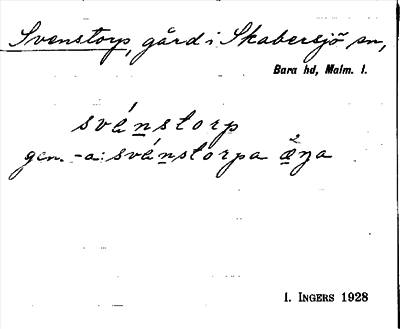 Svenstorp, gård i Skabersjö sn,
Bara hd, Malm. l.
svénstorp
gen. -a: svénstorpa ǽŋa
I. INGERS 1928